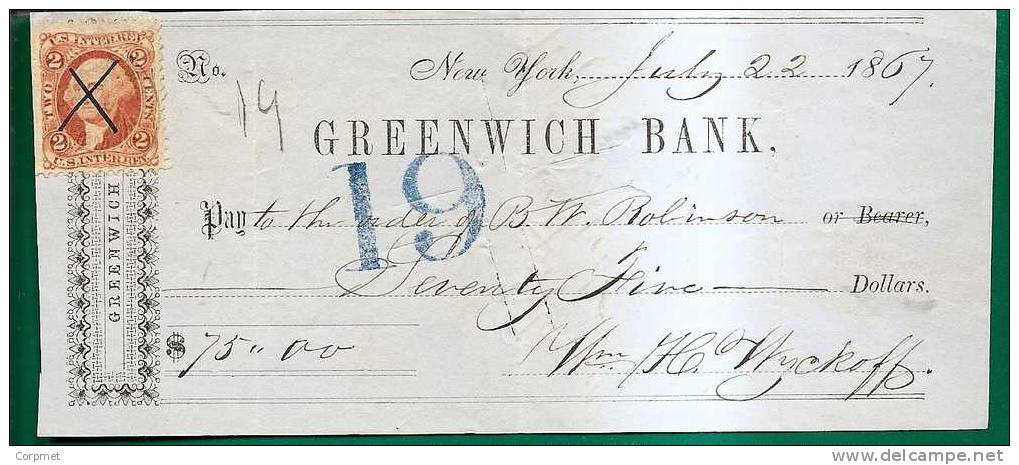 U.S. INTER. REV.
2 2
TWO CENTS
2 2
U.S. INTER. REV.
No. 19
New York, July 22 1867.
GREENWICH BANK,
19
Pay to the order of B. W. Robinson or Bearer,
Seventy Five Dollars.
$ 75.00
Wm. H. Wyckoff.
GREENWICH
Copyright delcampe.net